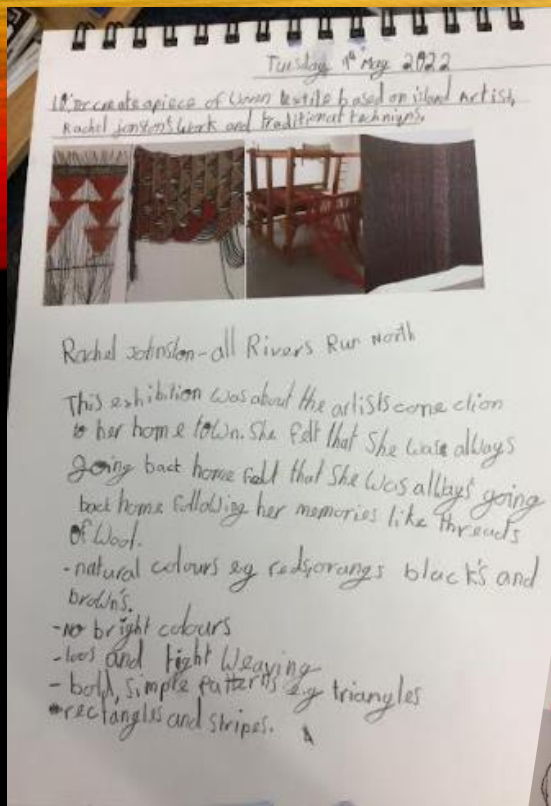 Tuesday 9th May 2022
LO: To create a piece of Woven textile based on island Artist,
Rachel jonson's work and traditional techniqus.
Rachel Johnston - all Rivers Run North
This exhibition was about the artists conne ction
to her home town. She felt that she was always
going back home felt that she was allways going
back home following her memories like threads
of wool.
- natural colours eg reds, orangs black's and
brown's.
- no bright colours
- loos and tight Weaving
- bold, simple patterns e.g triangles
rectangles and stripes.